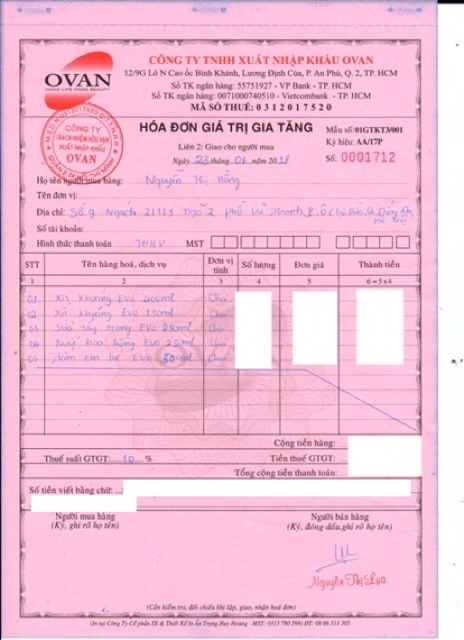 OVAN
MAKE LIFE MORE BEAUTY
CÔNG TY TNHH XUẤT NHẬP KHẨU OVAN
12/9G Lô N Cao ốc Bình Khánh, Lương Định Của, P. An Phú, Q. 2, TP. HCM
Số TK ngân hàng: 55751927 - VP Bank - TP. HCM
Số TK ngân hàng: 0071000740510 - Vietcombank - TP. HCM
MÃ SỐ THUẾ: 0312017520
TRÁCH NHIỆM HỮU HẠN
XUẤT NHẬP KHẨU
OVAN
HÓA ĐƠN GIÁ TRỊ GIA TĂNG
Liên 2: Giao cho người mua
Ngày 23 tháng 06 năm 2018
Mẫu số: 01GTKT3/001
Ký hiệu: AA/17P
Số: 0001712
Họ tên người mua hàng: Nguyễn Thị Hằng
Tên đơn vị:
Địa chỉ: Số 9 Ngách Ngõ 2 Phố Vũ Thạnh
Số tài khoản:
Hình thức thanh toán MST
STT Tên hàng hoá, dịch vụ Đơn vị tính Số lượng Đơn giá Thành tiền
1 2 3 4 5 6 = 5x4
01 Xịt Khoáng Evo 400ml Chai
02 Xịt Khoáng Evo 150ml Chai
03 Sữa tẩy trang Evo 250ml Chai
04 Nước hoa hồng Evo 250ml Chai
05 em bé Evo Chai
Cộng tiền hàng:
Thuế suất GTGT: 10 % Tiền thuế GTGT:
Tổng cộng tiền thanh toán:
Số tiền viết bằng chữ:
Người mua hàng
(Ký, ghi rõ họ tên)
Người bán hàng
(Ký, đóng dấu, ghi rõ họ tên)
Nguyễn Thị Lựa
(Cần kiểm tra, đối chiếu khi lập, giao, nhận hoá đơn)
(In tại Công Ty Cổ phần SX & Thiết Kế In Ấn Trọng Huy Hoàng - MST: 0313 780 598) ĐT: 08 66 512 505